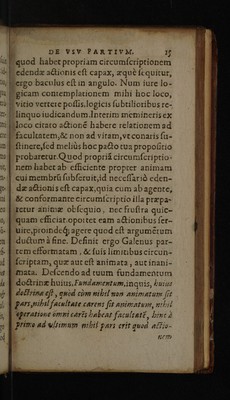 DE VSV PARTIVM. 15
quod habet propriam circumscriptionem
edendæ actionis est capax, æquè sequitur,
ergo baculus est in angulo. Num iure lo-
gicam contemplationem mihi hoc loco,
vitio vertere possis, logicis subtilioribus re-
linquo iudicandum. Interim memineris ex
loco citato actionē habere relationem ad
facultatem, & non ad vitam, vt conaris su-
stinere, sed meliùs hoc pacto tua propositio
probaretur. Quod propriā circumscriptio-
nem habet ab efficiente propter animam
cui membrū subseruit, id necessariò eden-
dæ actionis est capax, quia cum ab agente,
& conformante circumscriptio illa præpa-
retur animæ obsequio, nec frustra quic-
quam efficiat, oportet eam actionibus ser-
uire, proindeq; agere quod est argumētum
ductum à fine. Definit ergo Galenus par-
tem efformatam, & suis limitibus circun-
scriptam, quæ aut est animata, aut inani-
mata. Descendo ad tuum fundamentum
doctrinæ huius. Fundamentum, inquis, huius
doctrinæ est, quòd cùm nihil non animatum sit
pars, nihil facultate carens sit animatum, nihil
operatione omni carēs habeat facultatē, hinc à
primo ad vltimum nihil pars erit quod actio-
nem